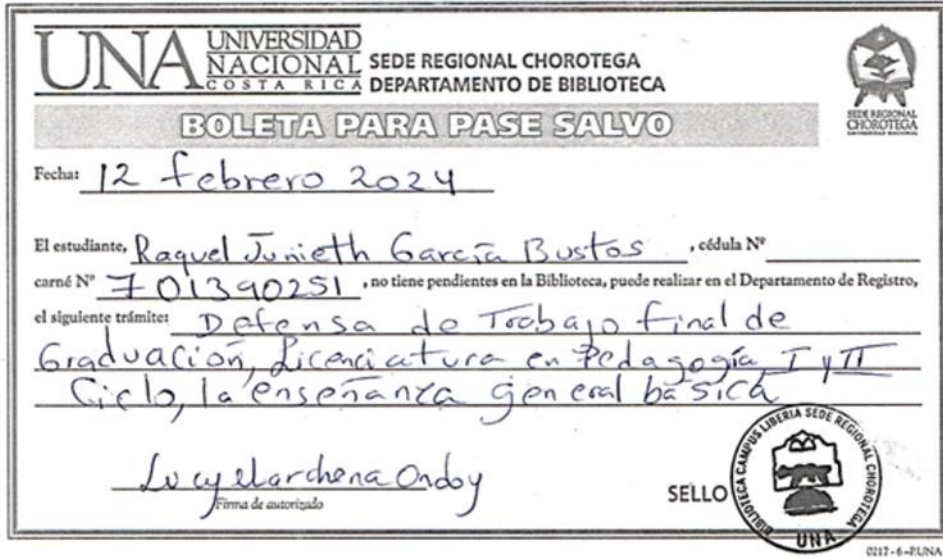 UNA UNIVERSIDAD
NACIONAL
COSTA RICA
SEDE REGIONAL CHOROTEGA
DEPARTAMENTO DE BIBLIOTECA
SEDE REGIONAL
CHOROTEGA
UNIVERSIDAD NACIONAL
BOLETA PARA PASE SALVO
Fecha: 12 febrero 2024
El estudiante, Raquel Junieth García Bustos, cédula Nº
carné Nº 701390251, no tiene pendientes en la Biblioteca, puede realizar en el Departamento de Registro,
el siguiente trámite: Defensa de Trabajo final de
Graduación, Licenciatura en Pedagogía, I y II
Ciclo, la enseñanza general básica
Lucy Marchena Ondoy
Firma de autorizado
SELLO
BIBLIOTECA CAMPUS LIBERIA SEDE REGIONAL CHOROTEGA
UNA
0217-6-P.UNA